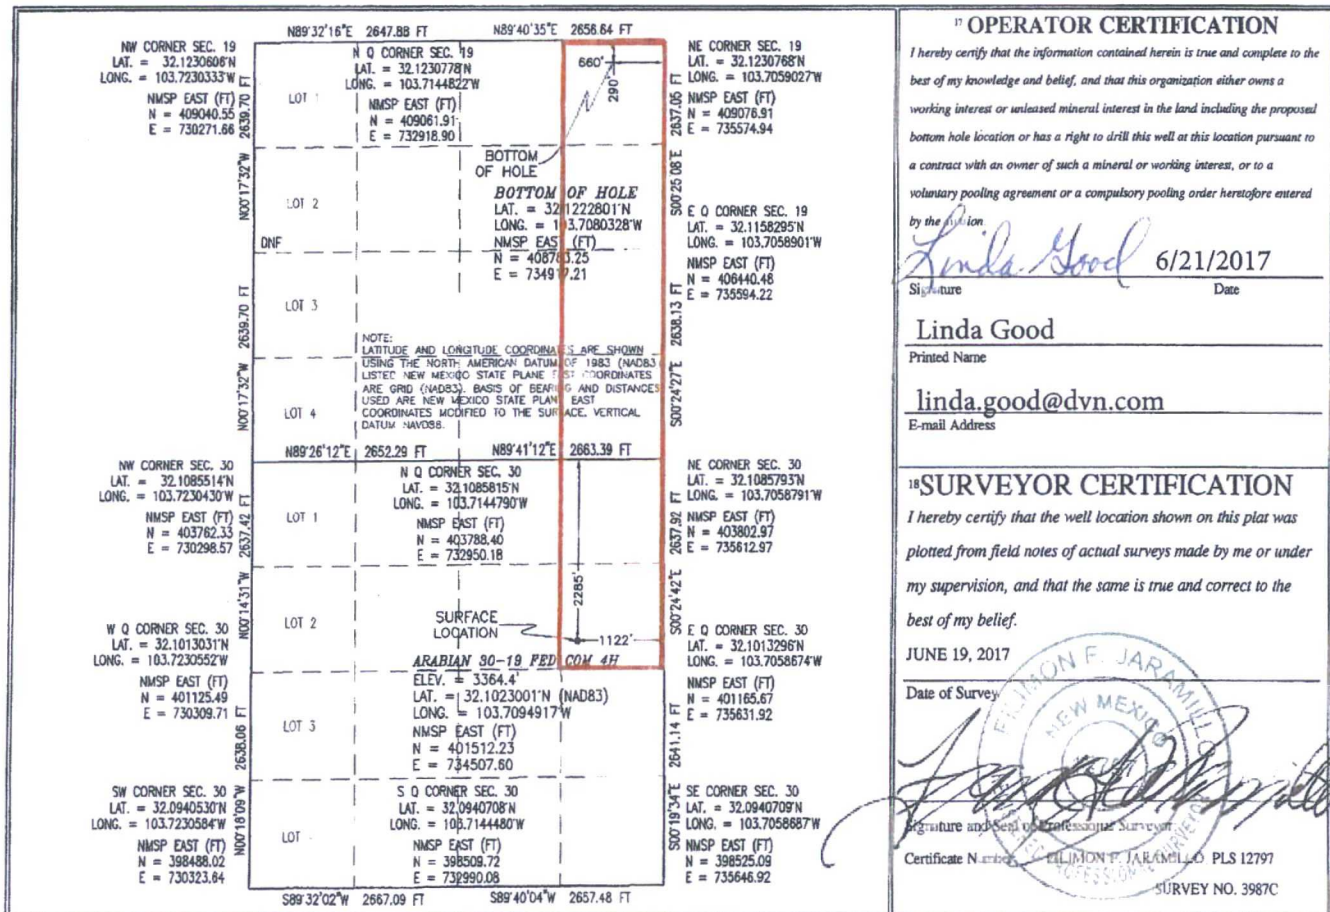 N89°32'16"E 2647.88 FT
N89°40'35"E 2656.64 FT
NW CORNER SEC. 19
LAT. = 32.1230606'N
LONG. = 103.7230333'W
NMSP EAST (FT)
N = 409040.55
E = 730271.66
2639.70 FT
N00°17'32"W
N Q CORNER SEC. 19
LAT. = 32.1230778'N
LONG. = 103.7144822'W
NMSP EAST (FT)
N = 409061.91
E = 732918.90
660'
290'
NE CORNER SEC. 19
LAT. = 32.1230768'N
LONG. = 103.7059027'W
NMSP EAST (FT)
N = 409076.91
E = 735574.94
2637.05 FT
S00°25'08"E
LOT 1
BOTTOM
OF HOLE
LOT 2
BOTTOM OF HOLE
LAT. = 32.1222801'N
LONG. = 103.7080328'W
NMSP EAST (FT)
N = 408783.25
E = 734917.21
DNF
E Q CORNER SEC. 19
LAT. = 32.1158295'N
LONG. = 103.7058901'W
NMSP EAST (FT)
N = 406440.48
E = 735594.22
LOT 3
2639.70 FT
N00°17'32"W
2638.13 FT
S00°24'27"E
NOTE:
LATITUDE AND LONGITUDE COORDINATES ARE SHOWN
USING THE NORTH AMERICAN DATUM OF 1983 (NAD83)
LISTED NEW MEXICO STATE PLANE EAST COORDINATES
ARE GRID (NAD83). BASIS OF BEARING AND DISTANCES
USED ARE NEW MEXICO STATE PLANE EAST
COORDINATES MODIFIED TO THE SURFACE. VERTICAL
DATUM NAVD88.
LOT 4
N89°26'12"E 2652.29 FT
N89°41'12"E 2663.39 FT
NW CORNER SEC. 30
LAT. = 32.1085514'N
LONG. = 103.7230430'W
NMSP EAST (FT)
N = 403762.33
E = 730298.57
2637.42 FT
N00°14'31"W
N Q CORNER SEC. 30
LAT. = 32.1085815'N
LONG. = 103.7144790'W
NMSP EAST (FT)
N = 403788.40
E = 732950.18
NE CORNER SEC. 30
LAT. = 32.1085793'N
LONG. = 103.7058791'W
NMSP EAST (FT)
N = 403802.97
E = 735612.97
2637.92 FT
S00°24'42"E
LOT 1
2285'
LOT 2
SURFACE
LOCATION
1122'
W Q CORNER SEC. 30
LAT. = 32.1013031'N
LONG. = 103.7230552'W
NMSP EAST (FT)
N = 401125.49
E = 730309.71
E Q CORNER SEC. 30
LAT. = 32.1013296'N
LONG. = 103.7058674'W
NMSP EAST (FT)
N = 401165.67
E = 735631.92
ARABIAN 30-19 FED COM 4H
ELEV. = 3364.4'
LAT. = 32.1023001'N (NAD83)
LONG. = 103.7094917'W
NMSP EAST (FT)
N = 401512.23
E = 734507.60
LOT 3
2638.06 FT
N00°18'09"W
2641.14 FT
S00°19'34"E
SW CORNER SEC. 30
LAT. = 32.0940530'N
LONG. = 103.7230584'W
NMSP EAST (FT)
N = 398488.02
E = 730323.64
S Q CORNER SEC. 30
LAT. = 32.0940708'N
LONG. = 103.7144480'W
NMSP EAST (FT)
N = 398509.72
E = 732990.08
SE CORNER SEC. 30
LAT. = 32.0940709'N
LONG. = 103.7058687'W
NMSP EAST (FT)
N = 398525.09
E = 735646.92
LOT
S89°32'02"W 2667.09 FT
S89°40'04"W 2657.48 FT
17 OPERATOR CERTIFICATION
I hereby certify that the information contained herein is true and complete to the
best of my knowledge and belief, and that this organization either owns a
working interest or unleased mineral interest in the land including the proposed
bottom hole location or has a right to drill this well at this location pursuant to
a contract with an owner of such a mineral or working interest, or to a
voluntary pooling agreement or a compulsory pooling order heretofore entered
by the division
Linda Good 6/21/2017
Signature Date
Linda Good
Printed Name
linda.good@dvn.com
E-mail Address
18 SURVEYOR CERTIFICATION
I hereby certify that the well location shown on this plat was
plotted from field notes of actual surveys made by me or under
my supervision, and that the same is true and correct to the
best of my belief.
JUNE 19, 2017
Date of Survey
FILIMON F. JARAMILLO
NEW MEXICO
PROFESSIONAL SURVEYOR
Signature and Seal of Professional Surveyor
Certificate Number FILIMON F. JARAMILLO PLS 12797
SURVEY NO. 3987C